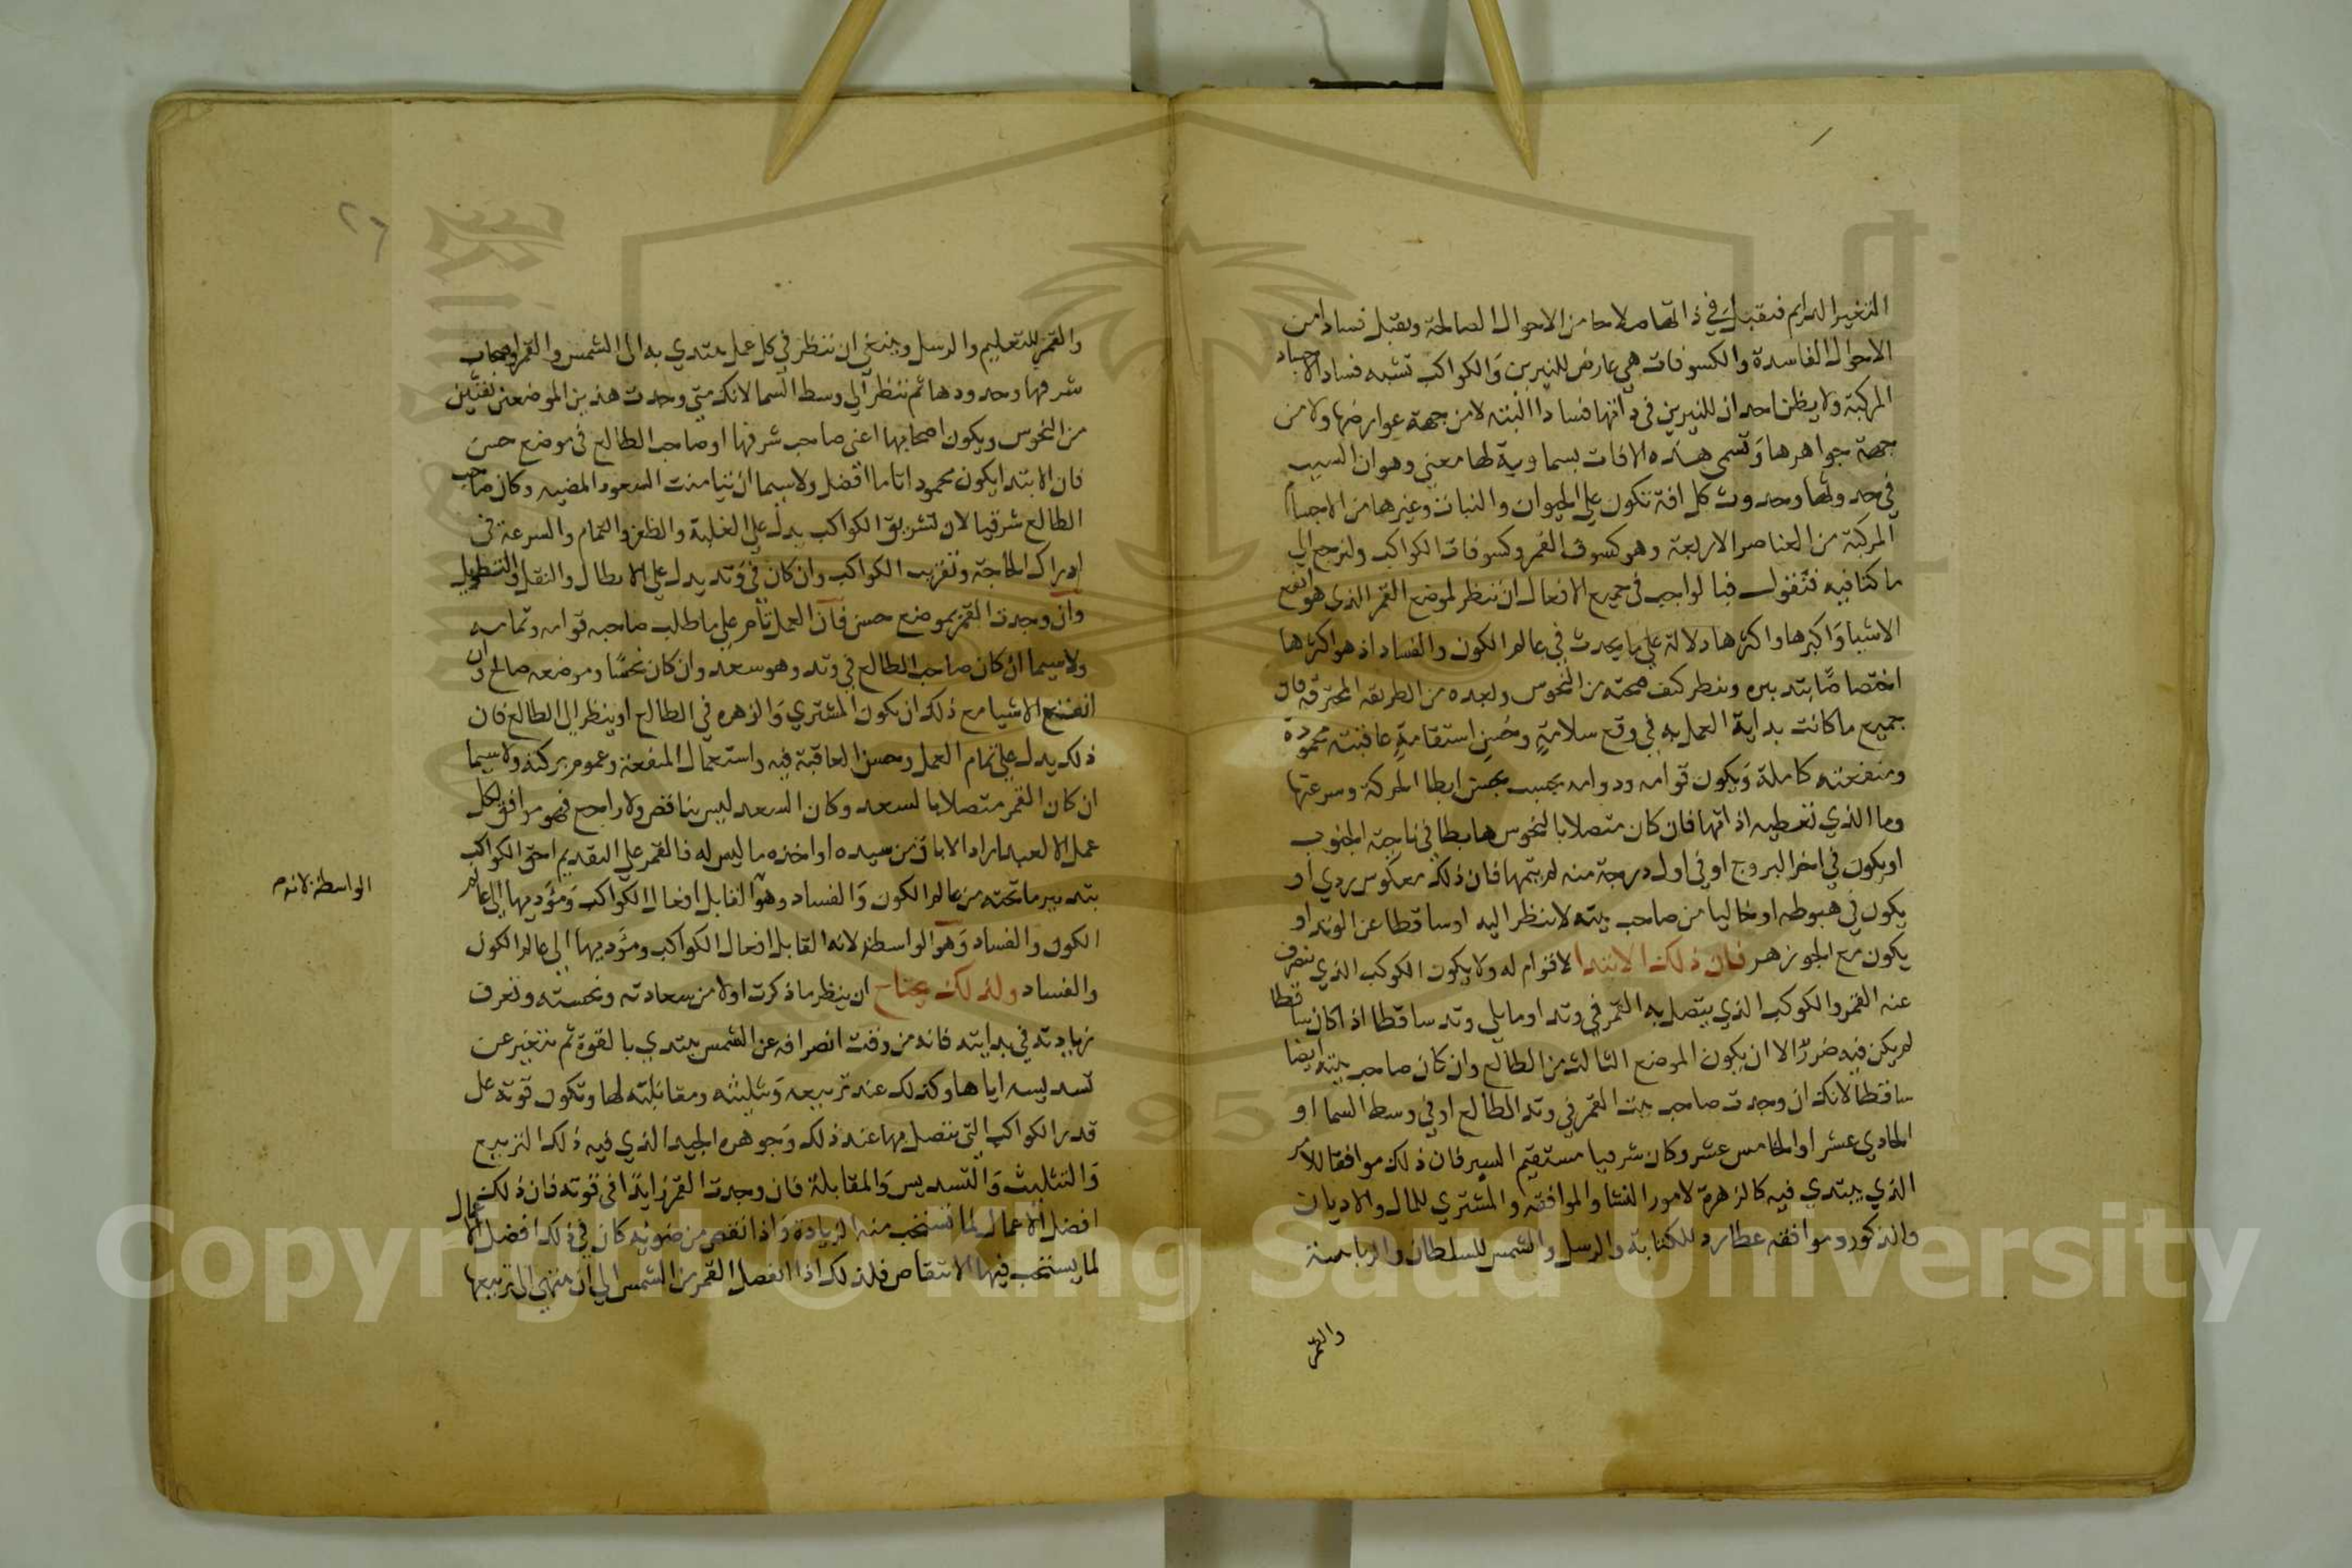 التغير الدايم فتقبل في ذاتها صلاحا من الاحوال الصالحة وتقبل فسادا من
الاحوال الفاسدة والكسوفات هي عارض للنيرين والكواكب تشبه فساد الاجساد
المركبة ولا يظن احد ان للنيرين في ذاتها فسادا البته لا من جهة عوارضها ولا من
جهة جواهرها وتسمى هذه الافات بسماوية لها معنى وهو ان السبب
في حدوثها وحدوث كل افة تكون على الحيوان والنبات وغيرها من الاجسام
المركبة من العناصر الاربعة وهو كسوف القمر وكسوفات الكواكب ولنرجع الى
ما كنا فيه فنقول فبالواجب في جميع الافعال ان ننظر لموضع القمر الذي هو انفع
الاشيا واكبرها واكثرها دلالة على ما يحدث في عالم الكون والفساد اذ هو اكثرها
اختصاصا بتدبيره وينظر كيف صحته من النحوس وبعده من الطريقه المحترقه فان
جميع ما كانت بداية العمل به في وقع سلامة وحسن استقامة عاقبته محمودة
ومنفعته كاملة ويكون قوامه ودوامه بحسب ابطا الحركة وسرعتها
وما الذي تعطيه اذاتها فان كان متصلا بالنحوس هابطا في ناحية الجنوب
او يكون في اخر البروج او في اول درجة منه لم يتمها فان ذلك معكوس ردي او
يكون في هبوطه او خاليا من صاحب بيته لا ينظر اليه او ساقطا عن الوتد او
يكون مع الجوزهر فان ذلك الابتدا لا قوام له ولا يكون الكوكب الذي ينصرف
عنه القمر والكوكب الذي يتصل به القمر في وتد او مايلي وتد ساقطا اذا كان ساقطا
لم يكن فيه ضررا الا ان يكون الموضع الثالث من الطالع وان كان صاحب بيته ايضا
ساقطا لانك ان وجدت صاحب بيت القمر في وتد الطالع او في وسط السما او
الحادي عشر او الخامس عشر وكان شرقيا مستقيم السير فان ذلك موافقا للامر
الذي يبتدي فيه كالزهرة لامور النسا والموافقه والمشتري للمال والاديان
والذكور وموافقه عطارد للكتابة والرسل والشمس للسلطان والرياسة
والقمر
٢٦
والقمر للتعليم والرسل وينبغي ان ننظر في كل عمل يبتدي به الى الشمس والقمر واصحاب
شرفها وحدودها ثم ننظر الى وسط السما لانك متى وجدت هذين الموضعين نقيين
من النحوس ويكون اصحابها اعني صاحب شرفها او صاحب الطالع في موضع حسن
فان الابتدا يكون محمودا تاما افضل ولا سيما ان تيامنت السعود المضيه وكان صاحب
الطالع شرقيا لان تشريق الكواكب يدل على الغلبة والظفر والتمام والسرعة في
ادراك الحاجة وتغريب الكواكب وان كان في وتد يدل على الابطال والثقل والتطويل
وان وجدت القمر بموضع حسن فان العمل تام على ما طالب صاحبه قوامه وتمامه
ولا سيما ان كان صاحب الطالع في وتد وهو سعد وان كان نحسا وموضعه صالح وان
انفع الاشيا مع ذلك ان يكون المشتري والزهره في الطالع او ينظر الى الطالع فان
ذلك يدل على تمام العمل وحسن العاقبة فيه واستعمال المنفعة وعموم بركته ولا سيما
ان كان القمر متصلا بالسعد وكان السعد ليس بناقص ولا راجع فهو موافق لكل
عمل الا لعبد اراد الاباق من سيده او اخذه ما ليس له فالقمر على التقديم احق الكواكب
بتدبير ما تحته من عالم الكون والفساد وهو القابل افعال الكواكب ومؤديها الى عالم
الكون والفساد وهو الواسطة لانه القابل افعال الكواكب ومؤديها الى عالم الكون
والفساد ولذلك يحتاج ان ينظر ما ذكرت اولا من سعادته ونحسته وتعرف
زيادته في بدايته فانه من وقت انصرافه عن الشمس يبتدي بالقوة ثم يتغير عن
تسديسه اياها وكذلك عند تربيعه وتثليثه ومقابلته لها وتكون قوته على
قدر الكواكب التي يتصل بها عند ذلك وجوهره الجيد الذي فيه ذلك التربيع
والتثليث والتسديس والمقابلة فان وجدت القمر زايدا في قوته فان ذلك
افضل الاعمال لما تستحب منه الزيادة واذا نقص من ضوئه كان في ذلك افضل الاعمال
لما يستحب فيها الانتقاص فلذلك اذا انفصل القمر من الشمس الى ان ينتهي الى تربيعها
الواسطة لانه
Copyright © King Saud University